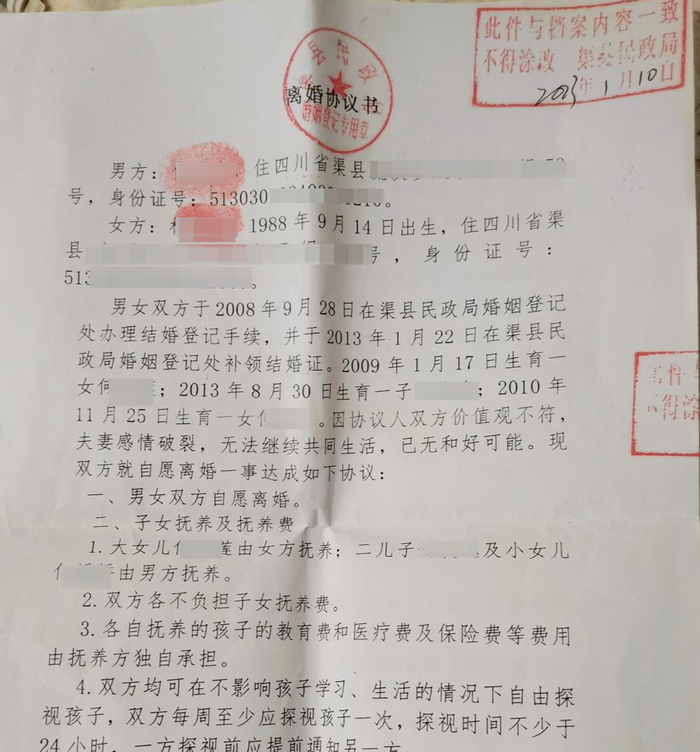 此件与档案内容一致
不得涂改 渠县民政局
年1月10日
离婚协议书
婚姻登记专用章
男方: 住四川省渠县
号,身份证号:513030
女方: 1988年9月14日出生,住四川省渠
县 号,身份证号:
513 。
男女双方于2008年9月28日在渠县民政局婚姻登记
处办理结婚登记手续,并于2013年1月22日在渠县民
政局婚姻登记处补领结婚证。2009年1月17日生育一
女何 ;2013年8月30日生育一子 ;2010年
11月25日生育一女 。因协议人双方价值观不符,
夫妻感情破裂,无法继续共同生活,已无和好可能。现
双方就自愿离婚一事达成如下协议:
一、男女双方自愿离婚。
二、子女抚养及抚养费
1.大女儿 莲由女方抚养;二儿子 及小女儿
由男方抚养。
2.双方各不负担子女抚养费。
3.各自抚养的孩子的教育费和医疗费及保险费等费用
由抚养方独自承担。
4.双方均可在不影响孩子学习、生活的情况下自由探
视孩子,双方每周至少应探视孩子一次,探视时间不少于
24小时,一方探视前应提前通知另一方
不得涂